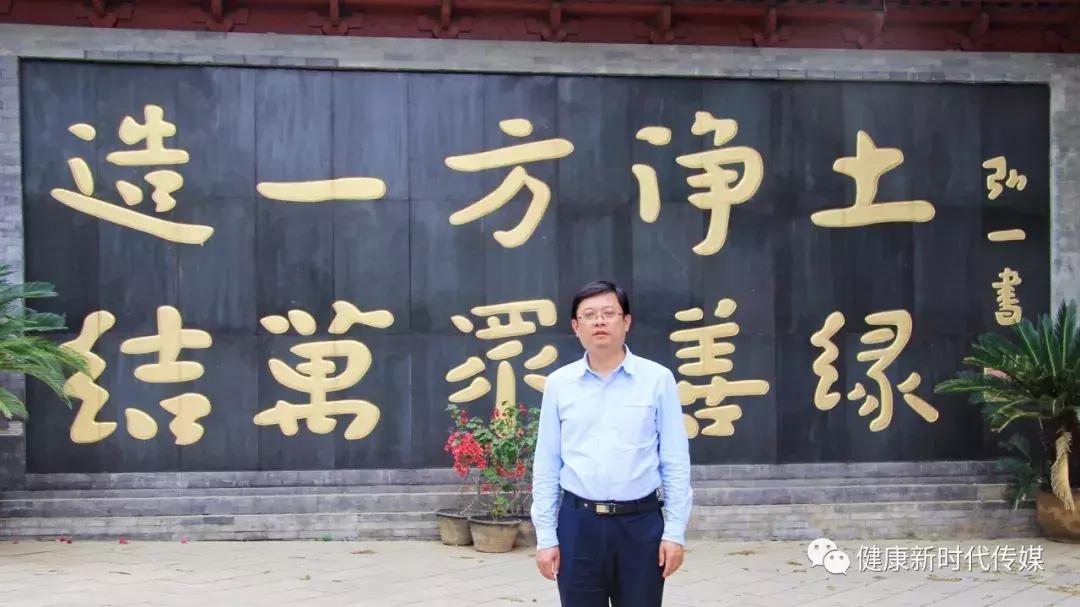 造一方净土
结萬眾善缘
弘一書
健康新时代传媒